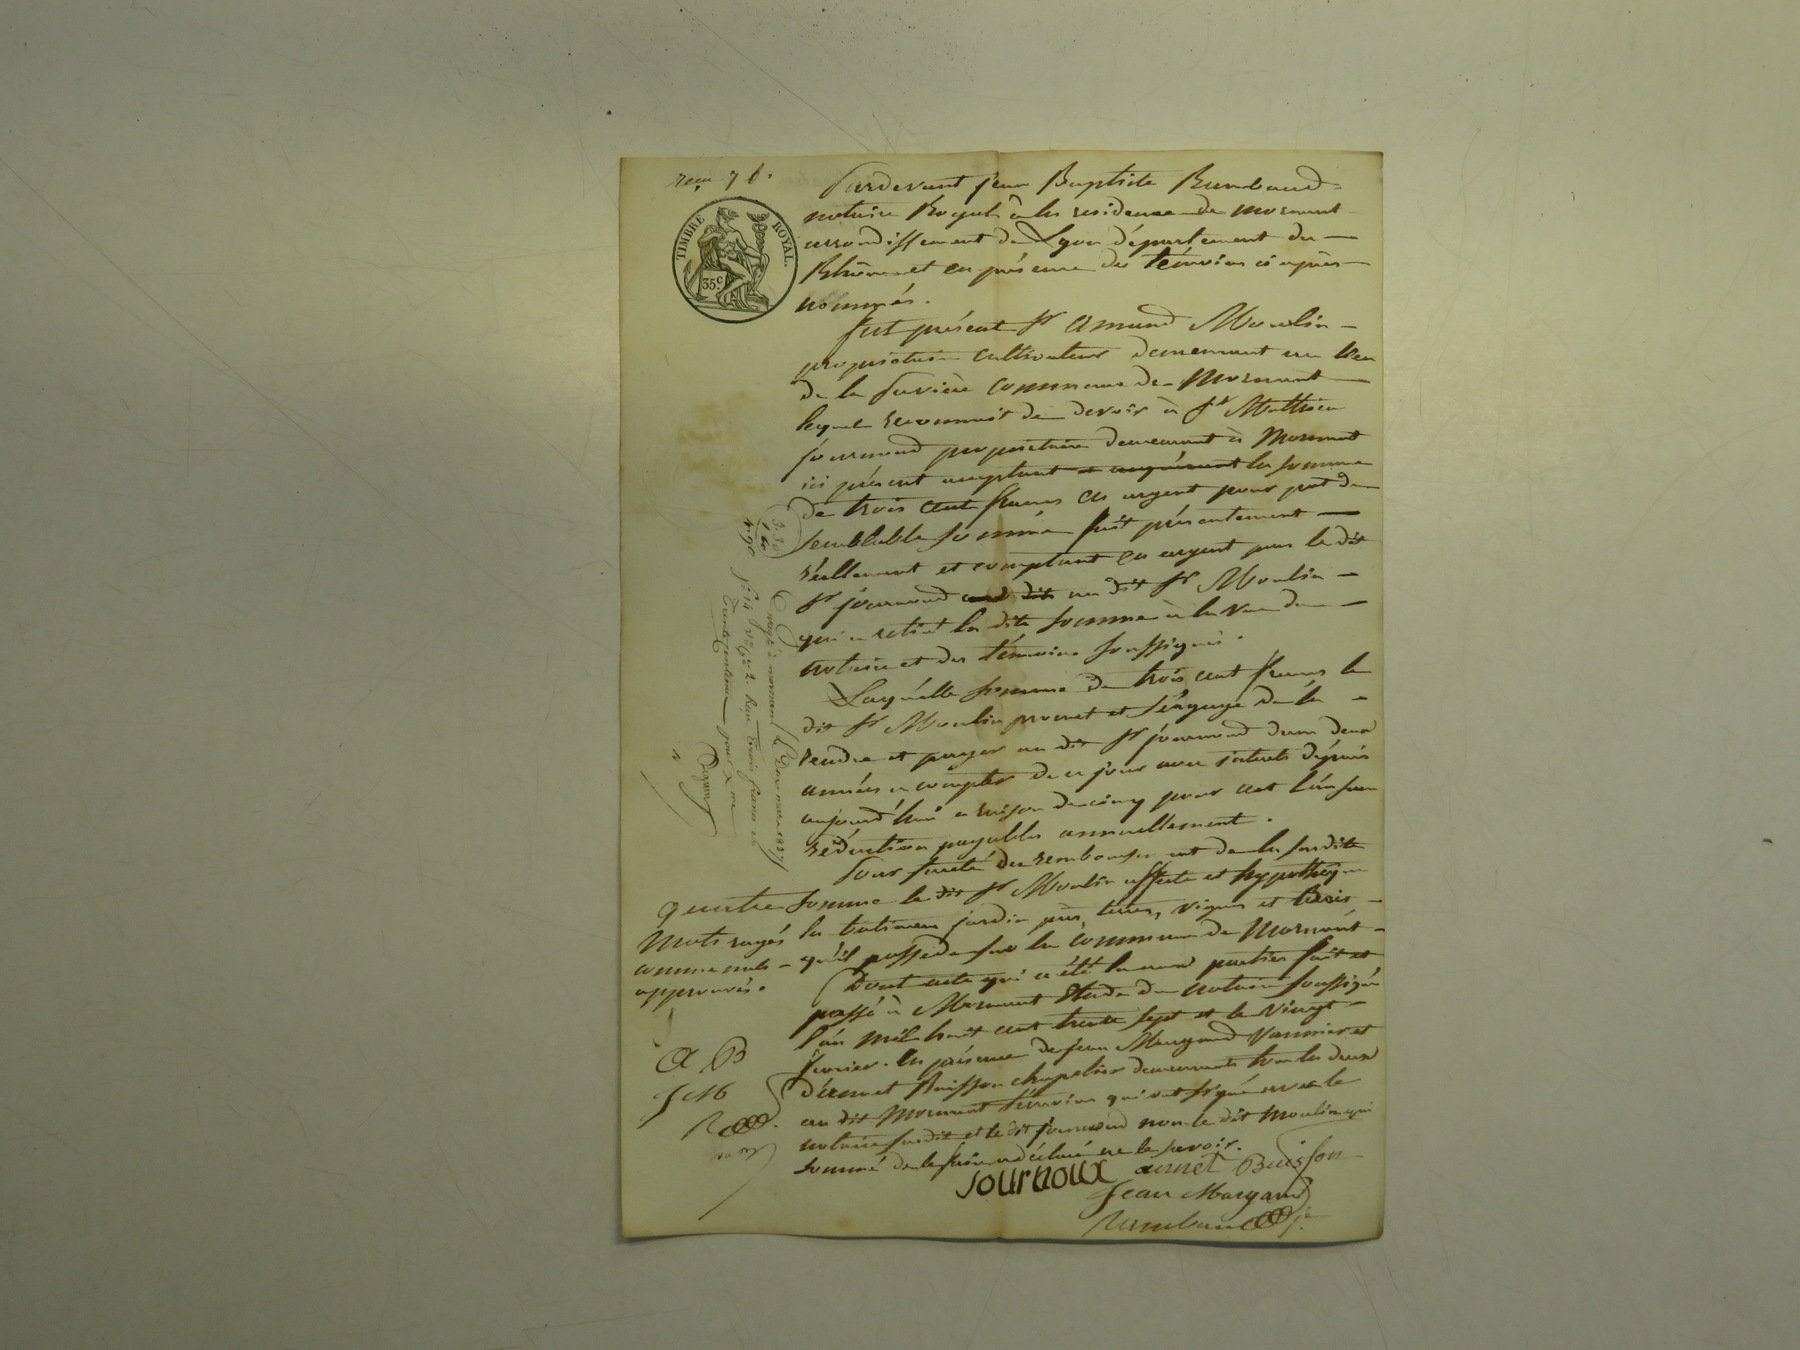 TIMBRE ROYAL.
35c.
Pardevant jean Baptiste Rambaud
notaire Royal à la residence de mornant
arrondissement de Lyon département du
Rhône et en présence des témoins ci après
nommés.
fut présent sr Amand Moulin
propriétaire cultivateur demeurant au lieu
de la commune de Mornant
lequel reconnait de devoir à sr Mathieu
journoud propriétaire demeurant à Mornant
ici présent acceptant et acquérant la somme
de trois cent francs en argent pour prêt de
semblable somme fait présentement
réellement et comptant en argent par le dit
sr journoud au dit sr Moulin
qui a retiré la dite somme à la vue du
notaire et des témoins soussignés.
Laquelle somme de trois cent francs le
dit sr Moulin promet et s'engage de la
rendre et payer au dit sr journoud dans deux
années a compter de ce jour avec intérets dépuis
aujourd'hui a raison de cinq pour cent l'an sans
réduction payables annuellement.
Pour sureté du remboursement de la susdite
somme le dit sr Moulin affecte et hypothèque
les batimens jardin près, terres, vignes et Bois
qu'il possede sur la commune de Mornant
Dont acte qui a été lu aux parties fait et
passé à Mornant Etude du notaire soussigné
l'an mil huit cent trente sept et le vingt
fevrier. En présence de jean Margand Vannier et
d'ennet Buisson chapelier demeurants tous les deux
au dit Mornant témoins qui ont signé avec le
notaire susdit et le dit journoud non le dit Moulin qui
sommé de le faire a déclaré ne le savoir.
quatre
mots rayés
comme nuls
approuvés.
A B
J M
3.30
4.90
mornant
trois francs
journoux
Buisson
Jean Margand
Rambaud